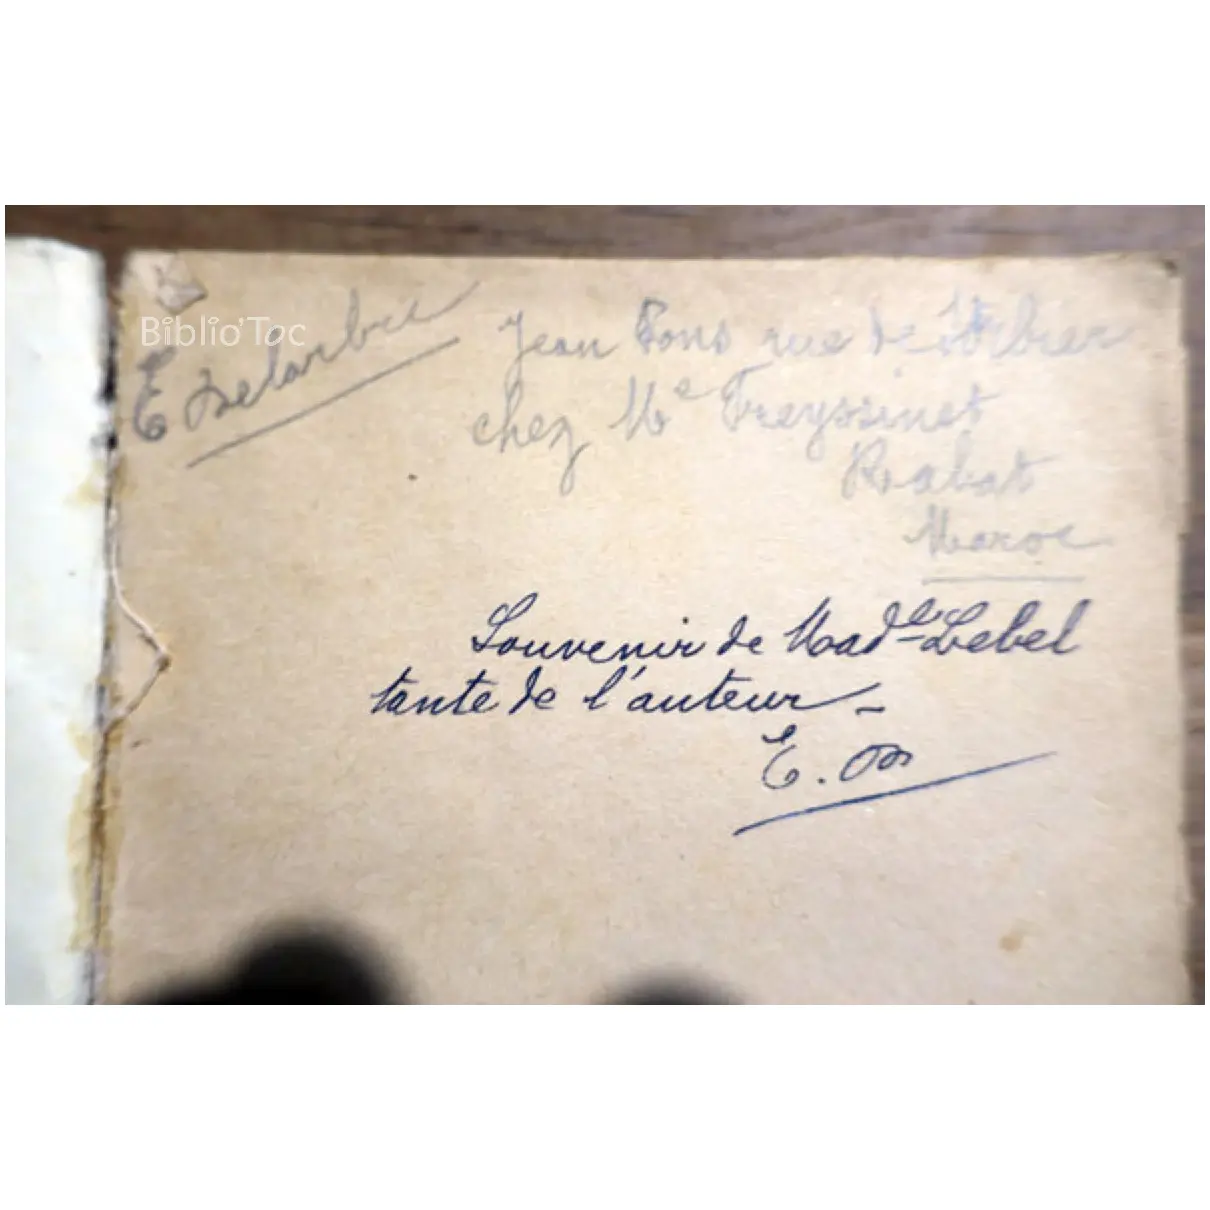 Biblio'Toc
E Delarbre
Jean Pons rue de
chez Me Freyssinet
Rabat
Maroc
Souvenir de Madle Lebel
tante de l'auteur –
E. D